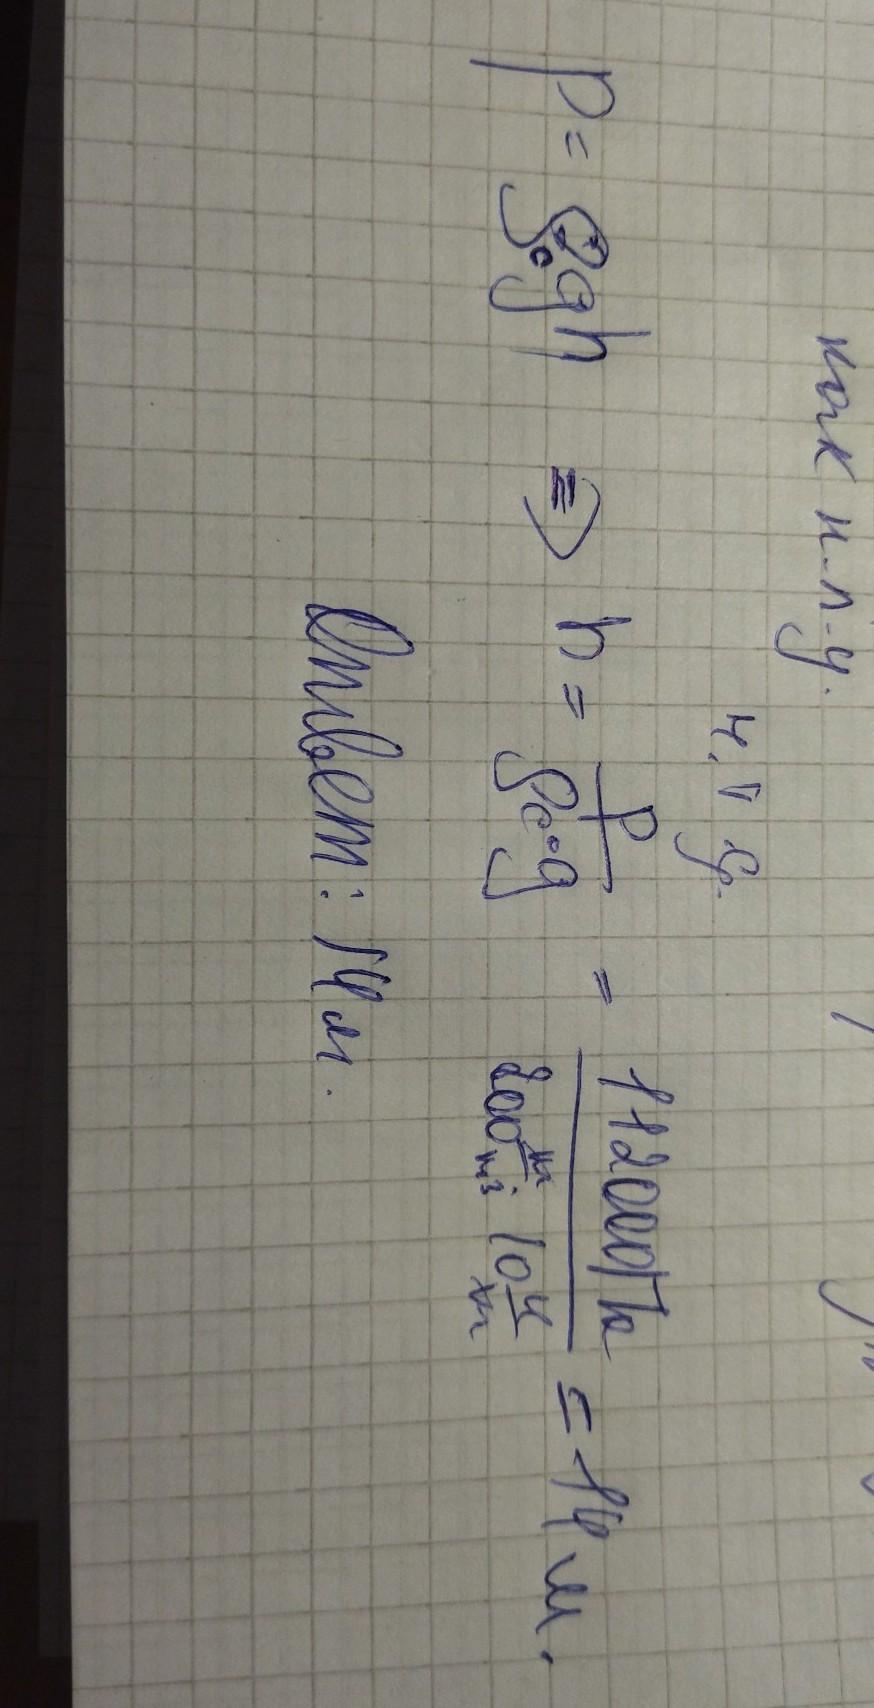 как н-п-у.
p = ρcgh ⇒ h = p/(ρc·g) = 112000Па/(800 кг/м³ · 10 Н/кг) = 14 м.
Ответ: 14 м.